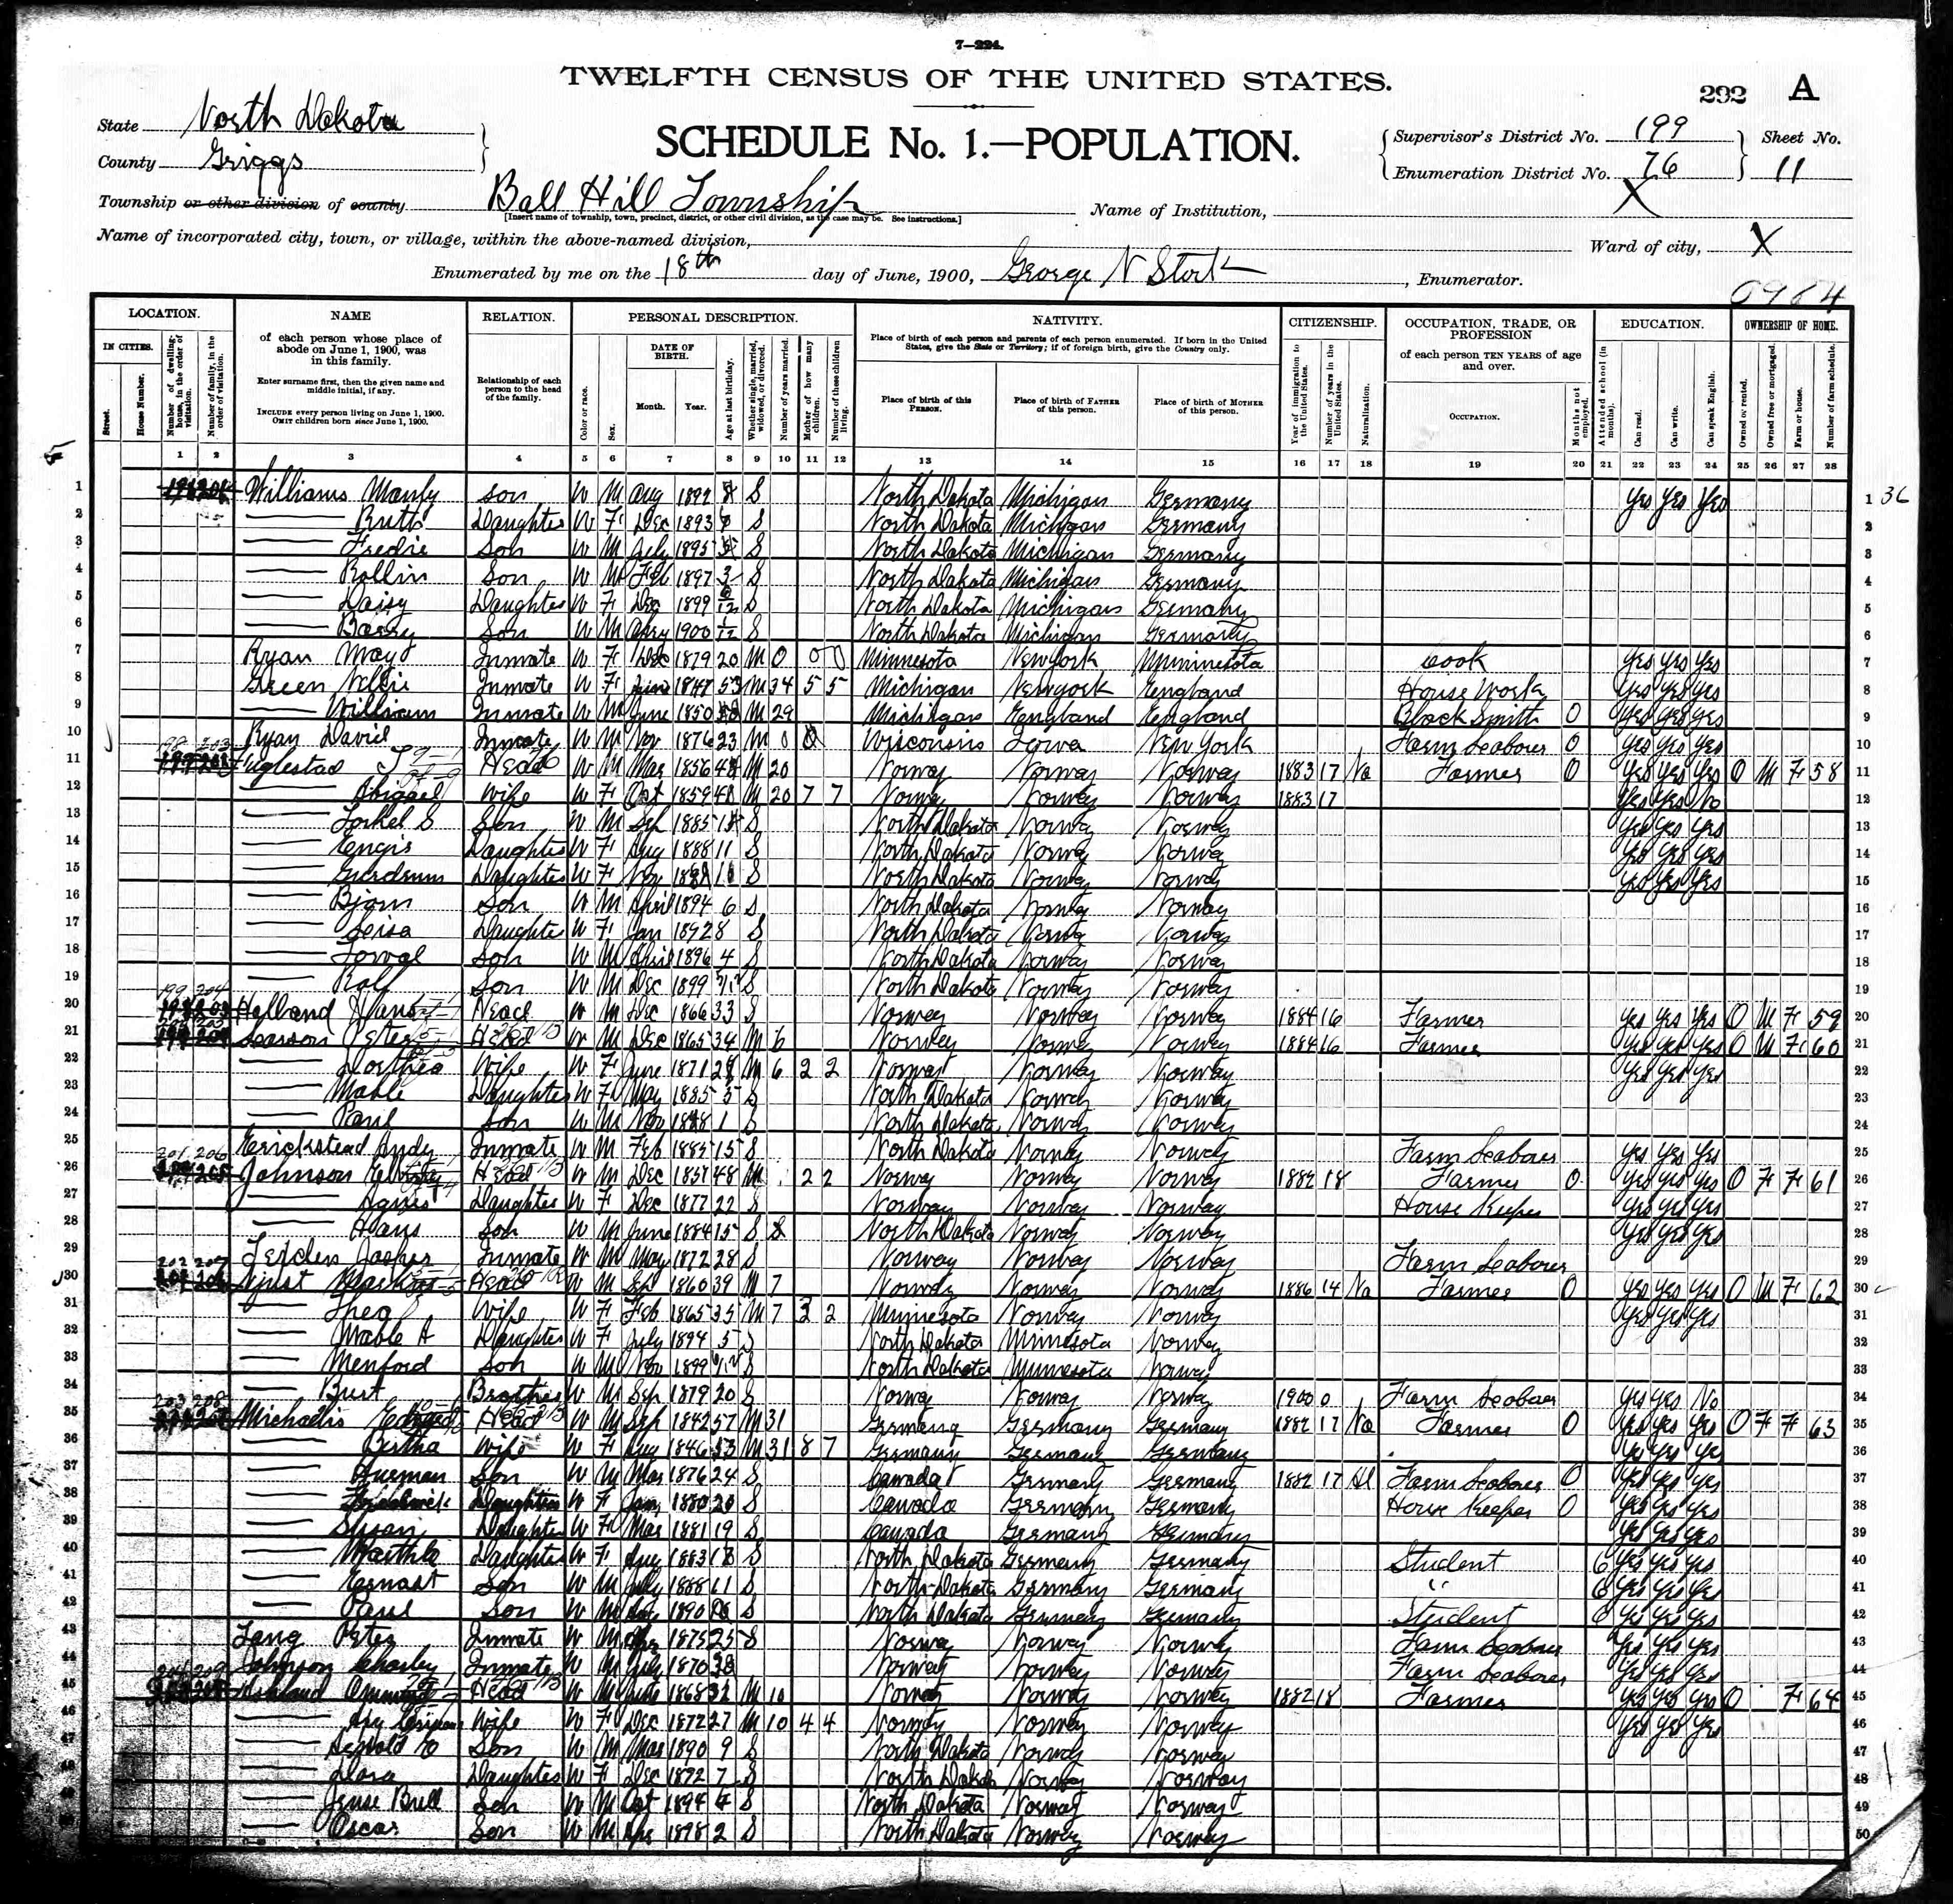 7—224.
TWELFTH CENSUS OF THE UNITED STATES.
292 A
State North Dakota
SCHEDULE No. 1.—POPULATION.
Supervisor's District No. 199 Sheet No.
County Griggs
Enumeration District No. 76 11
Township or other division of county Ball Hill Township Name of Institution, X
[Insert name of township, town, precinct, district, or other civil division, as the case may be. See instructions.]
Name of incorporated city, town, or village, within the above-named division, Ward of city, X
Enumerated by me on the 18th day of June, 1900, George N Stork, Enumerator.
LOCATION. NAME RELATION. PERSONAL DESCRIPTION. NATIVITY. CITIZENSHIP. OCCUPATION, TRADE, OR PROFESSION EDUCATION. OWNERSHIP OF HOME.
IN CITIES. Street. House Number. Number of dwelling-house, in the order of visitation. Number of family, in the order of visitation.
of each person whose place of abode on June 1, 1900, was in this family.
Enter surname first, then the given name and middle initial, if any.
INCLUDE every person living on June 1, 1900. OMIT children born since June 1, 1900.
Relationship of each person to the head of the family.
Color or race. Sex. DATE OF BIRTH. Month. Year. Age at last birthday. Whether single, married, widowed, or divorced. Number of years married. Mother of how many children. Number of these children living.
Place of birth of each person and parents of each person enumerated. If born in the United States, give the State or Territory; if of foreign birth, give the Country only.
Place of birth of this PERSON. Place of birth of FATHER of this person. Place of birth of MOTHER of this person.
Year of immigration to the United States. Number of years in the United States. Naturalization.
of each person TEN YEARS of age and over. OCCUPATION. Months not employed.
Attended school (in months). Can read. Can write. Can speak English.
Owned or rented. Owned free or mortgaged. Farm or house. Number of farm schedule.
1 2 3 4 5 6 7 8 9 10 11 12 13 14 15 16 17 18 19 20 21 22 23 24 25 26 27 28
1 Williams Manly Son W M Aug S North Dakota Michigan Germany Yes Yes Yes 1 36
2 Ruth Daughter W F Dec 1893 S North Dakota Michigan Germany 2
3 Fredie Son W M July 1895 S North Dakota Michigan Germany 3
4 Rollin Son W M Feb 1897 3 S North Dakota Michigan Germany 4
5 Daisy Daughter W F Dec 1899 6/12 S North Dakota Michigan Germany 5
6 Son W M 1900 1/12 S North Dakota Michigan Germany 6
7 Ryan May Inmate W F Dec 1879 20 M 0 0 0 Minnesota New York Minninesota Cook Yes Yes Yes 7
8 Green Nellie Inmate W F June 1847 53 M 34 5 5 Michigan New York England House Work Yes Yes Yes 8
9 William Inmate W M June 1850 M 29 Michigan England England Black Smith 0 Yes Yes Yes 9
10 Ryan David Inmate W M Nov 1876 23 M 0 Wisconsin Iowa New York Farm Laborer 0 Yes Yes Yes 10
11 Head W M Mar 1856 M 20 Norway Norway Norway 1883 17 Na Farmer 0 Yes Yes Yes O M F 58 11
12 Abigael Wife W F Oct 1859 M 20 7 7 Norway Norway Norway 1883 17 Yes Yes No 12
13 Torkel S Son W M Sep 1885 S North Dakota Norway Norway Yes Yes Yes 13
14 Daughter W F Aug 1888 11 S North Dakota Norway Norway Yes Yes Yes 14
15 Daughter W F Nov S North Dakota Norway Norway Yes Yes Yes 15
16 Bjorn Son W M April 1894 6 S North Dakota Norway Norway 16
17 Daughter W F Jan 1892 8 S North Dakota Norway Norway 17
18 Son W M April 1896 4 S North Dakota Norway Norway 18
19 Rolf Son W M Dec 1899 S North Dakota Norway Norway 19
20 Helland Hans Head W M Dec 1866 33 S Norway Norway Norway 1884 16 Farmer Yes Yes Yes O M F 59 20
21 Larson Peter Head W M Dec 1865 34 M 6 Norway Norway Norway 1884 16 Farmer Yes Yes Yes O M F 60 21
22 Dorthea Wife W F June 1871 M 6 2 2 Norway Norway Norway Yes Yes Yes 22
23 Mable Daughter W F May 1885 5 S North Dakota Norway Norway 23
24 Paul Son W M Nov 1 S North Dakota Norway Norway 24
25 Erickstead Andy Inmate W M Feb 1885 15 S North Dakota Norway Norway Farm Laborer Yes Yes Yes 25
26 Johnson Head W M Dec 1851 48 M 2 2 Norway Norway Norway 1882 18 Farmer 0 Yes Yes Yes O F F 61 26
27 Agnes Daughter W F Dec 1877 22 S Norway Norway Norway House Keeper Yes Yes Yes 27
28 Hans Son W M June 1884 15 S North Dakota Norway Norway Yes Yes Yes 28
29 Inmate W M May 1872 28 S Norway Norway Norway Farm Laborer 29
30 Markus Head W M Sep 1860 39 M 7 Norway Norway Norway 1886 14 Na Farmer 0 Yes Yes Yes O M F 62 30
31 Thea Wife W F Feb 1865 35 M 7 3 2 Minnesota Norway Norway Yes Yes Yes 31
32 Mable A Daughter W F July 1894 5 S North Dakota Minnesota Norway 32
33 Menford Son W M Nov 1899 S North Dakota Minnesota Norway 33
34 Burt Brother W M Sep 1879 20 S Norway Norway Norway 1900 0 Farm Laborer Yes Yes No 34
35 Michaelis Head W M Sep 1842 57 M 31 Germany Germany Germany 1882 17 Na Farmer 0 Yes Yes Yes O F F 63 35
36 Bertha Wife W F Aug 1846 53 M 31 8 7 Germany Germany Germany Yes Yes Yes 36
37 Herman Son W M Mar 1876 24 S Canada Germany Germany 1882 17 Al Farm Laborer 0 Yes Yes Yes 37
38 Daughter W F Jan 1880 20 S Canada Germany Germany House Keeper 0 Yes Yes Yes 38
39 Susan Daughter W F Mar 1881 19 S Canada Germany Germany Yes Yes Yes 39
40 Daughter W F Aug 1883 S North Dakota Germany Germany Student 6 Yes Yes Yes 40
41 Ernast Son W M July 1888 11 S North Dakota Germany Germany " 6 Yes Yes Yes 41
42 Paul Son W M 1890 S North Dakota Germany Germany Student 6 Yes Yes Yes 42
43 Lang Peter Inmate W M 1875 25 S Norway Norway Norway Farm Laborer Yes Yes Yes 43
44 Johnson Charley Inmate W M July 1870 Norway Norway Norway Farm Laborer Yes Yes Yes 44
45 Head W M June 1868 M 10 Norway Norway Norway 1882 18 Farmer Yes Yes Yes O F 64 45
46 Wife W F Dec 1872 27 M 10 4 4 Norway Norway Norway Yes Yes Yes 46
47 Son W M Mar 1890 9 S North Dakota Norway Norway 47
48 Dora Daughter W F Dec 1892 7 S North Dakota Norway Norway 48
49 Son W M Oct 1894 S North Dakota Norway Norway 49
Oscar Son W M 1898 2 S North Dakota Norway Norway 50